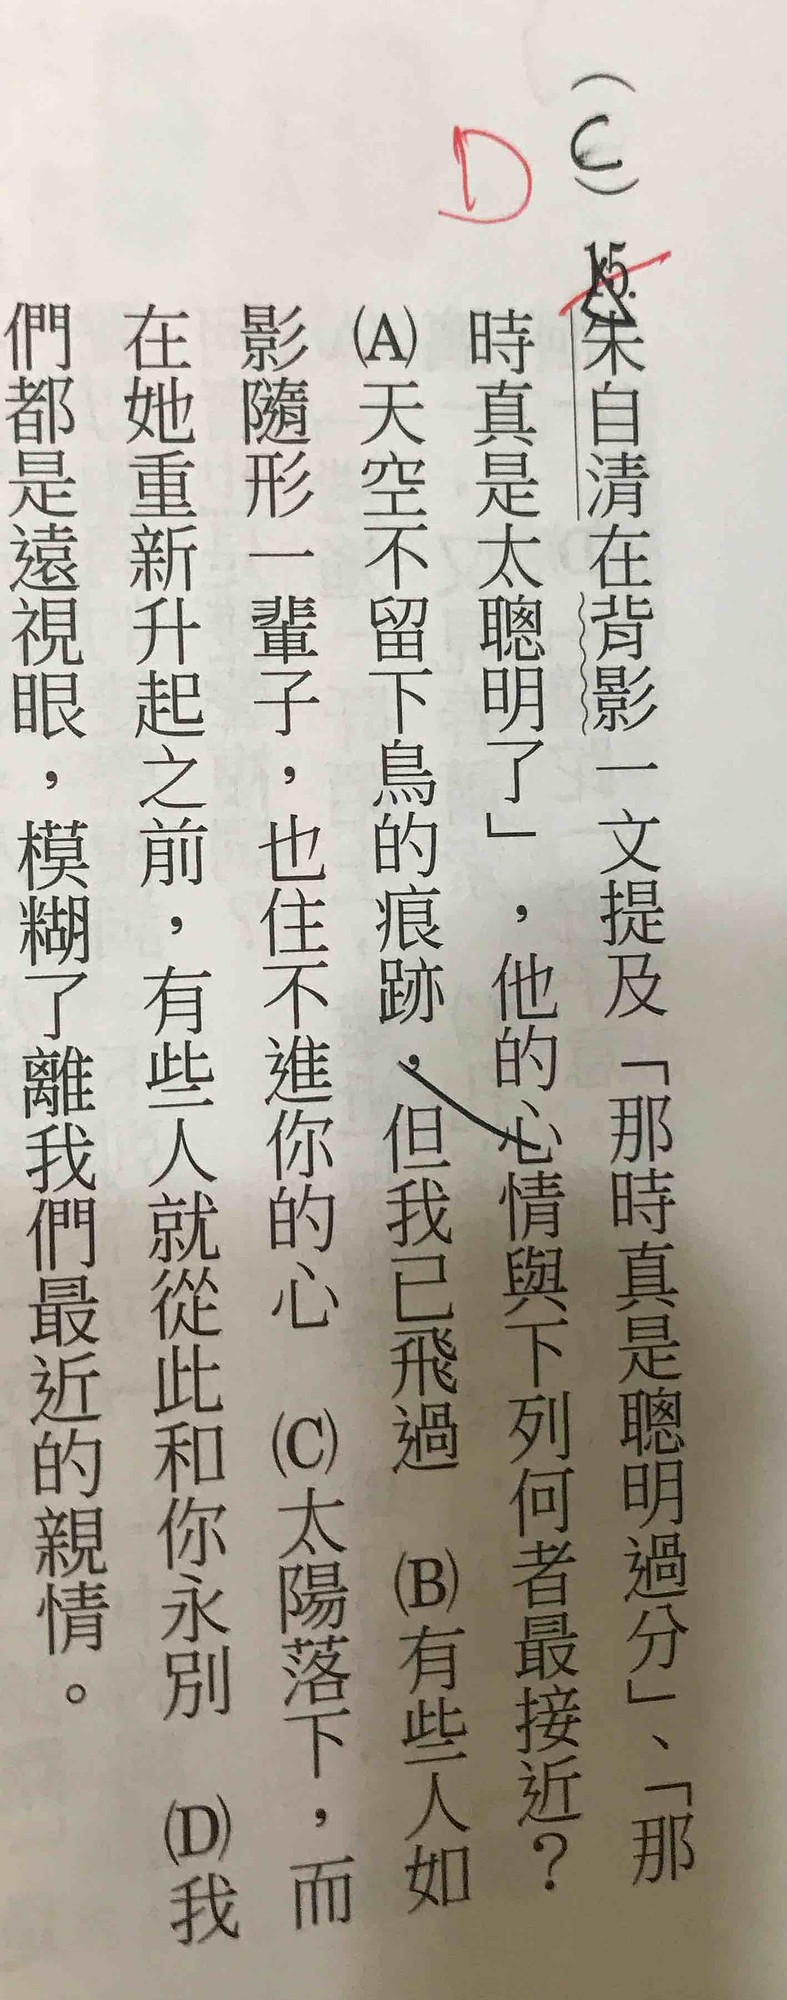 (C) 15.朱自清在背影一文提及「那時真是聰明過分」、「那
時真是太聰明了」,他的心情與下列何者最接近?
D
(A)天空不留下鳥的痕跡,但我已飛過 (B)有些人如
影隨形一輩子,也住不進你的心 (C)太陽落下,而
在她重新升起之前,有些人就從此和你永別 (D)我
們都是遠視眼,模糊了離我們最近的親情。